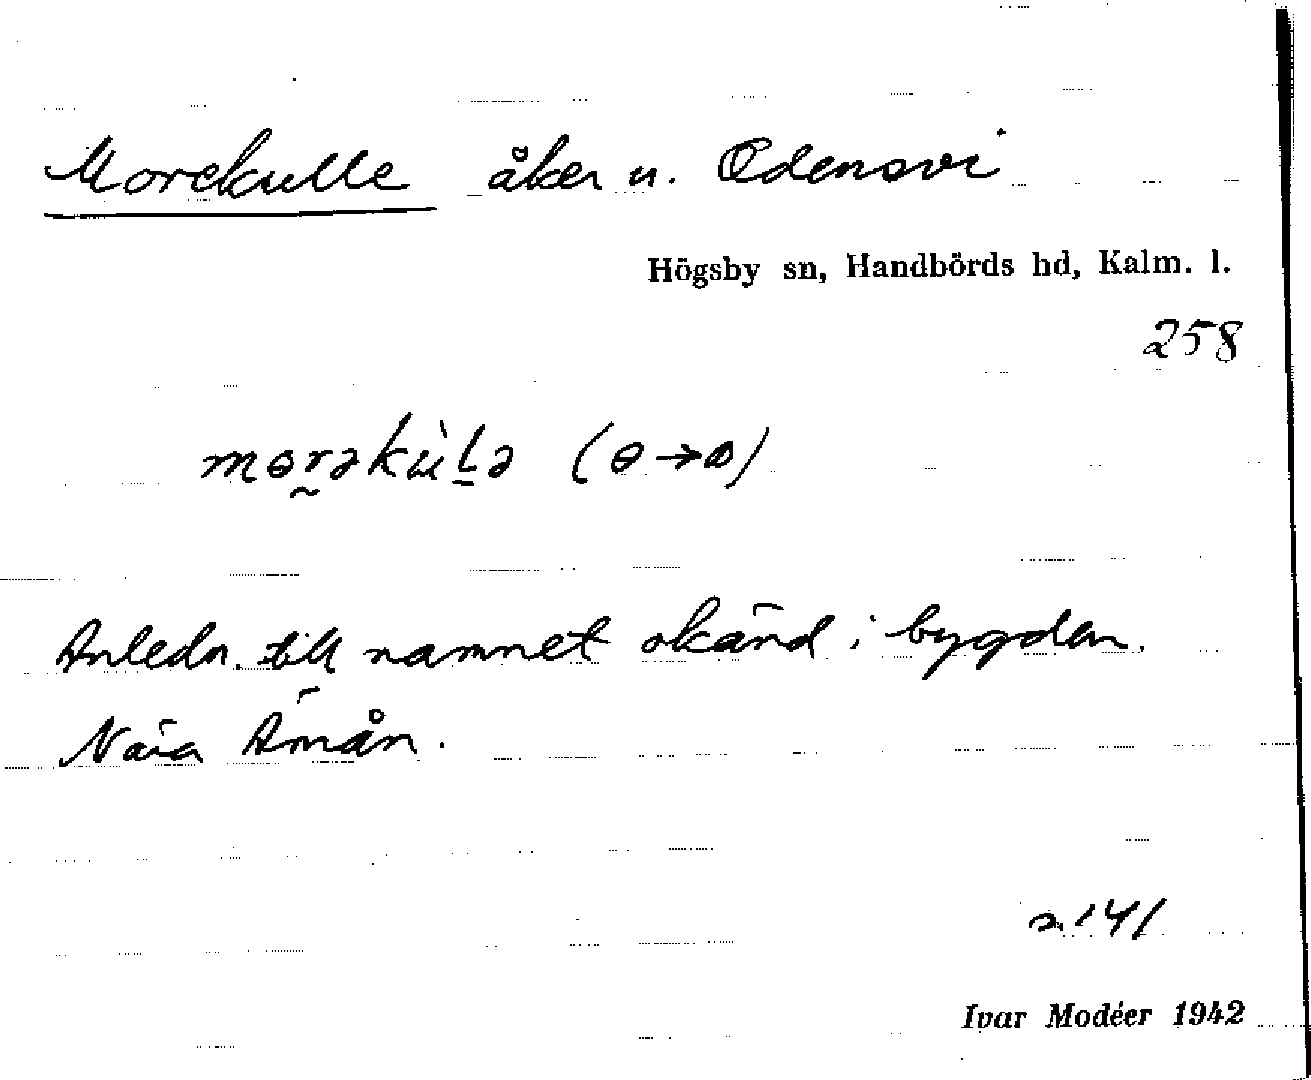 Morekulle åker u. Odensvi
Högsby sn, Handbörds hd, Kalm. l.
258
mɵr̰əkùl̲ə (ɵ→ɒ)
Anledn. till namnet okänd i bygden.
Nära Åmån.
s. 141
Ivar Modéer 1942